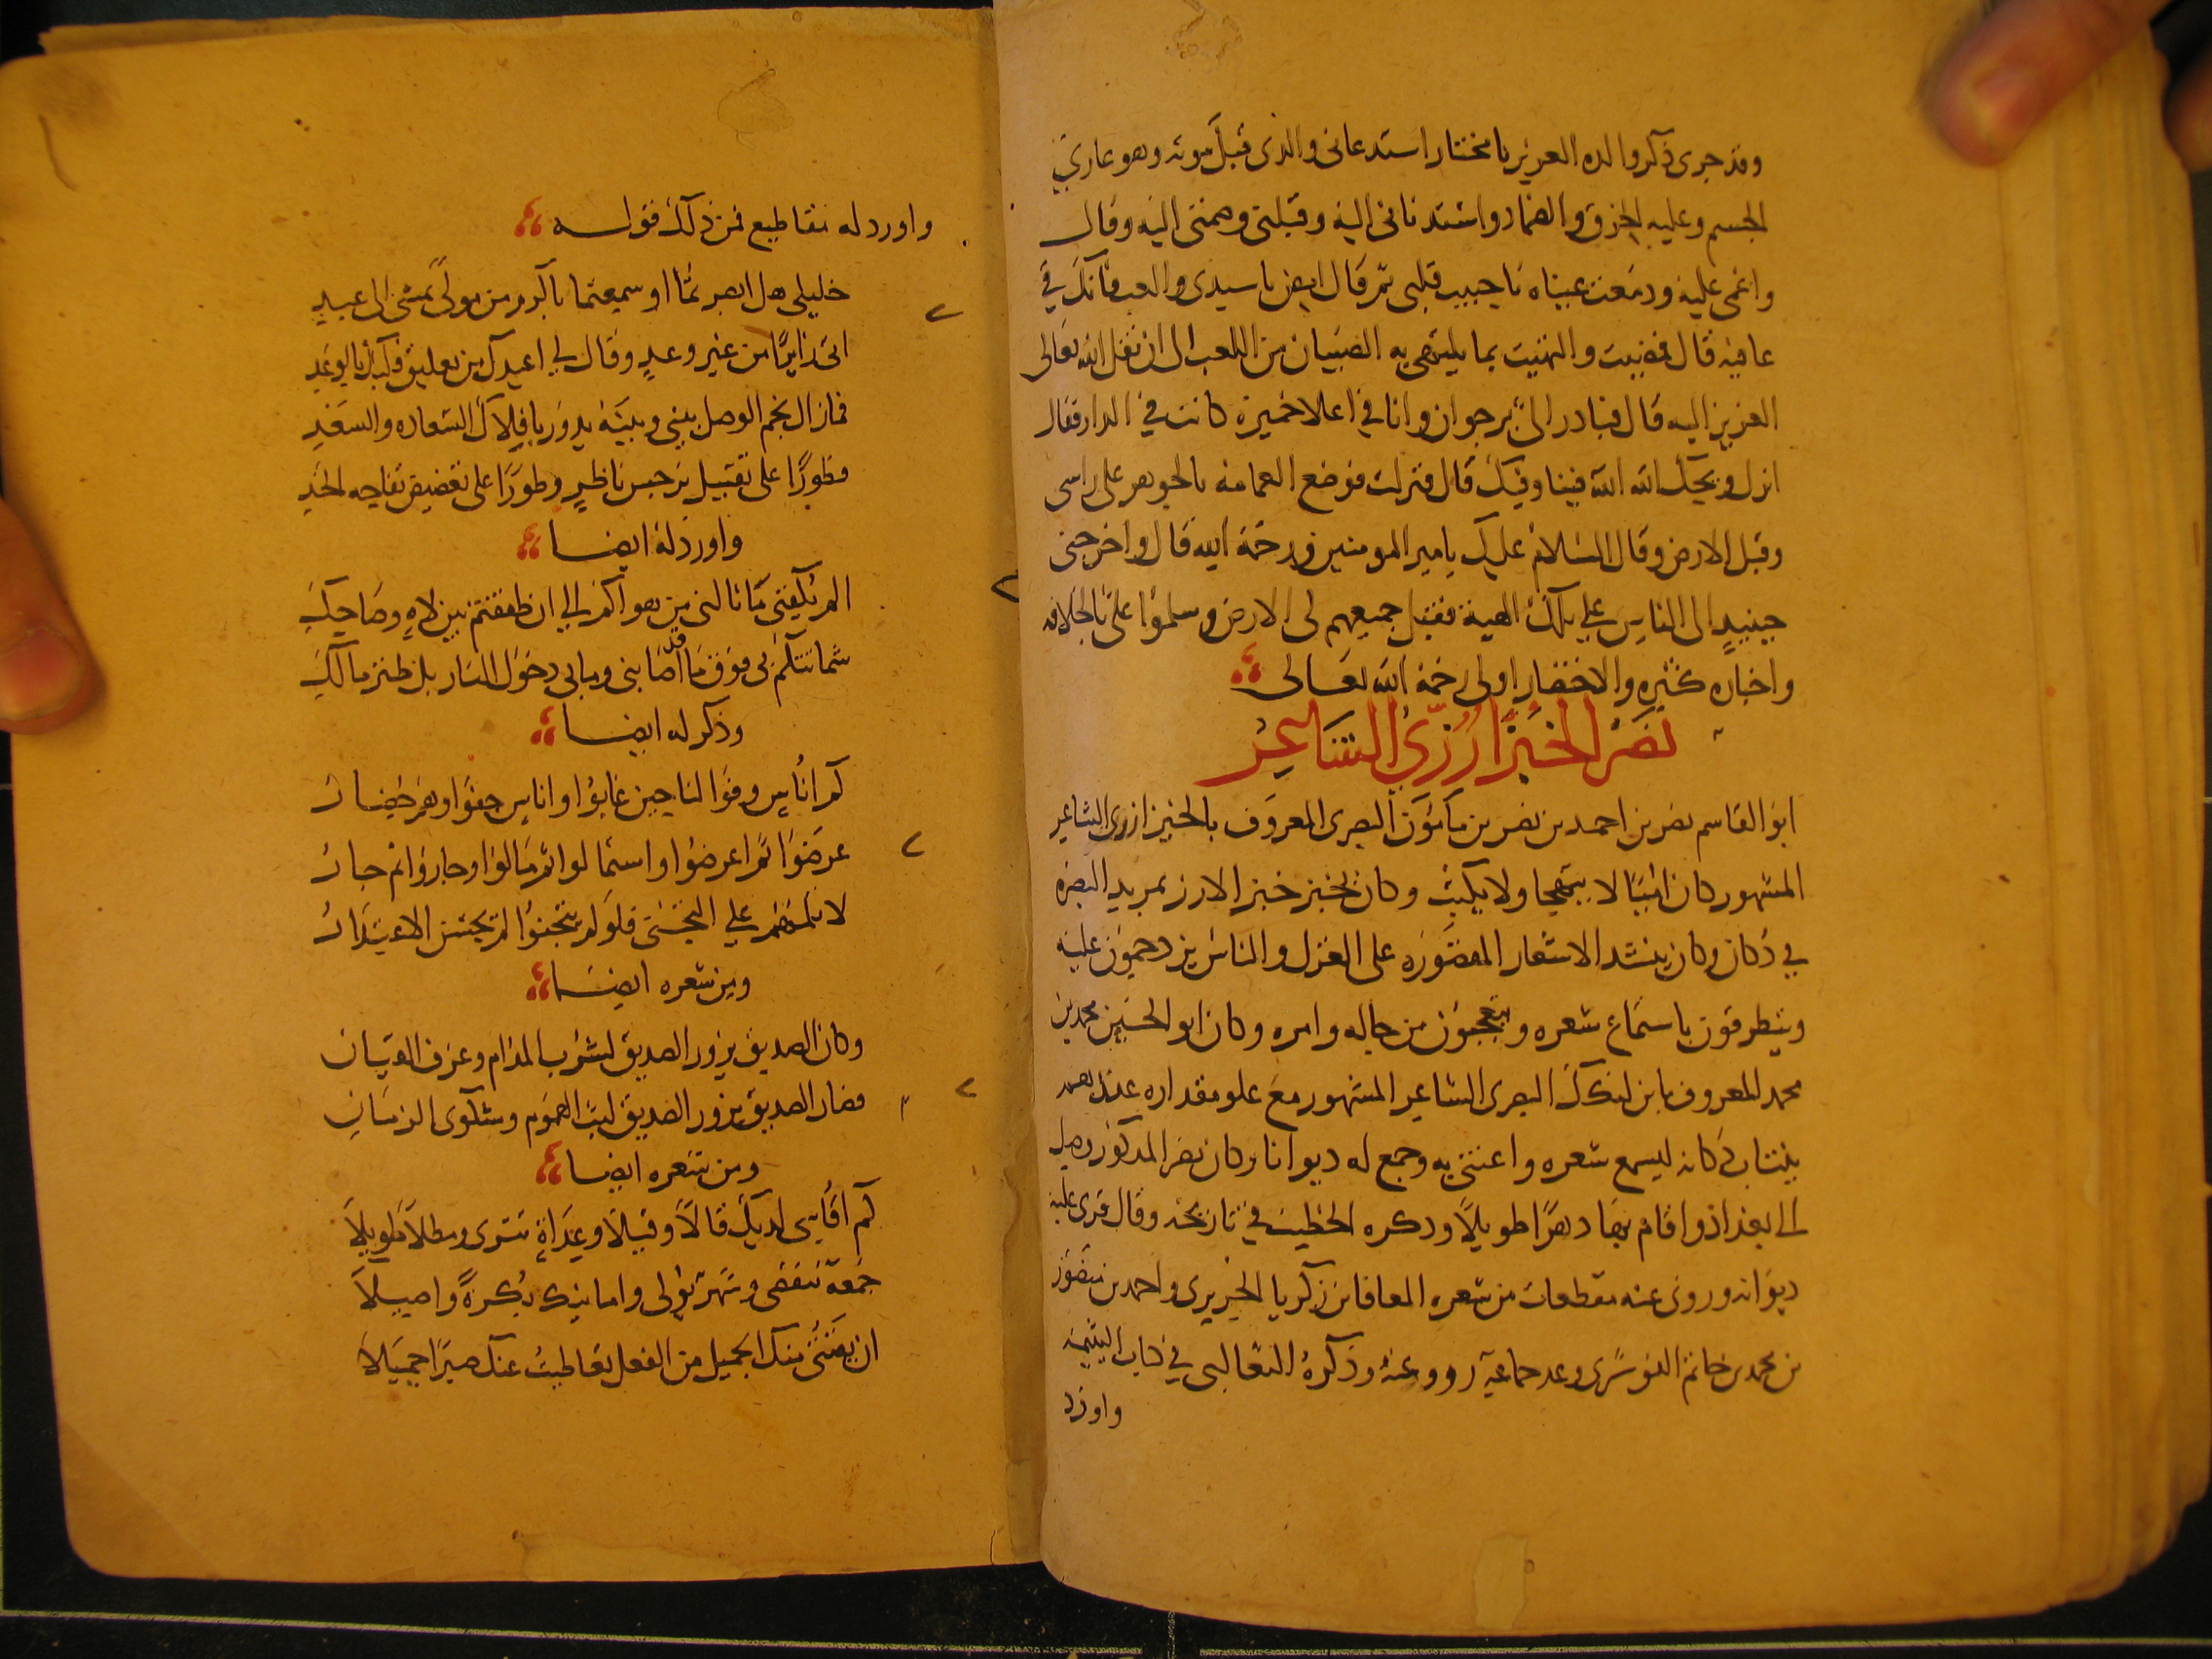 وقد جرى ذكر والده العزيز يا مختار استدعانى والدى قبل موته وهو عارى
الجسم وعليه الخرق والضماد واستدنانى اليه وقبلنى وضمنى اليه وقال
واغمى عليه ودمعت عيناه يا حبيب قلبى ثم قال امض يا سيدى والعب فانك في
عافيه قال فمضيت والتهيت بما يلتهى به الصبيان من اللعب الى ان نقل الله تعالى
العزيز اليه قال فبادر الىّ برجوان وانا في اعلا جميزة كانت في الدار فقال
انزل ويحك الله الله فينا وفيك قال فنزلت فوضع العمامه بالجوهر على راسى
وقبل الارض وقال السلام عليك يا امير المومنين ورحمة الله قال واخرجنى
حينيدٍ الى الناس على تلك الهيئة فقبل جميعهم لى الارض وسلموا علىّ بالخلافه
واخباره كثيره والاختصار اولى رحمه الله تعالى
نصر الخبزارزي الشاعر
ابو القاسم نصر بن احمد بن نصر بن مامون البصرى المعروف بالخبزارزى الشاعر
المشهور كان اميا لا يتهجا ولا يكتب وكان يخبز خبز الارز بمربد البصره
في دكان وكان ينشد الاشعار المقصوره على الغزل والناس يزدحمون عليه
ويتطرفون باستماع شعره ويتعجبون من حاله وامره وكان ابو الحسين محمد بن
محمد المعروف بابن لنكك البصرى الشاعر المشهور مع علو مقداره عندهم
ينتاب دكانه ليسمع شعره واعتنى به وجمع له ديوانا وكان نصر المدكور وصل
الى بغداد واقام بها دهرًا طويلاً ودكره الخطيب في تاريخه وقال قرى عليه
ديوانه وروى عنه مقطعات من شعره المعافا بن زكريا الجريرى واحمد بن منصور
بن محمد بن حاتم النوسرى وعد جماعة رووا عنه وذكره الثعالبى في كتاب اليتيمه
واورد
واورد له مقاطيع فمن ذلك قوله
خليلى هل ابصرتما او سمعتما باكرم من مولىً تمشى الى عبدِ
اتى زايرًا من غير وعدٍ وقال لي اعيدك من تعليق قلبك بالوعد
فما زال نجم الوصل بينى وبينه يدور بافلاك السعاده والسعد
فطورًا على تقبيل نرجس ناظرٍ وطورًا على تعضيض تفاحه الخد
واورد له ايضا
الم يكفنى ما نالنى من هواكم الي ان طفقتم بين لاهٍ وضاحك
شماتتكم بى فوق ما قد اصابنى وما بي دخول النار بل طنز مالك
وذكر له ايضا
كم اناس وفوا لنا حين غابوا واناس جفوا وهم حضار
عرضوا ثم اعرضوا واستمالوا ثم مالوا وجاروا ثم جاروا
لا تلمهم على التجنى فلو لم يتجنوا لم يحسن الاعتذار
ومن شعره ايضا
وكان الصديق يزور الصديق لشرب المدام وعزف القيان
فصار الصديق يزور الصديق لبث الهموم وشكوى الزمان
ومن شعره ايضا
كم اقاسى لديك قالاً وقيلاً وعداةٍ تترى ومطلاً طويلاً
جمعة تنقضى وشهر يولى وامانيك بكرةً واصيلاً
ان يفتنى منك الجميل من الفعل تعاطيت عنك صبرًا جميلاً